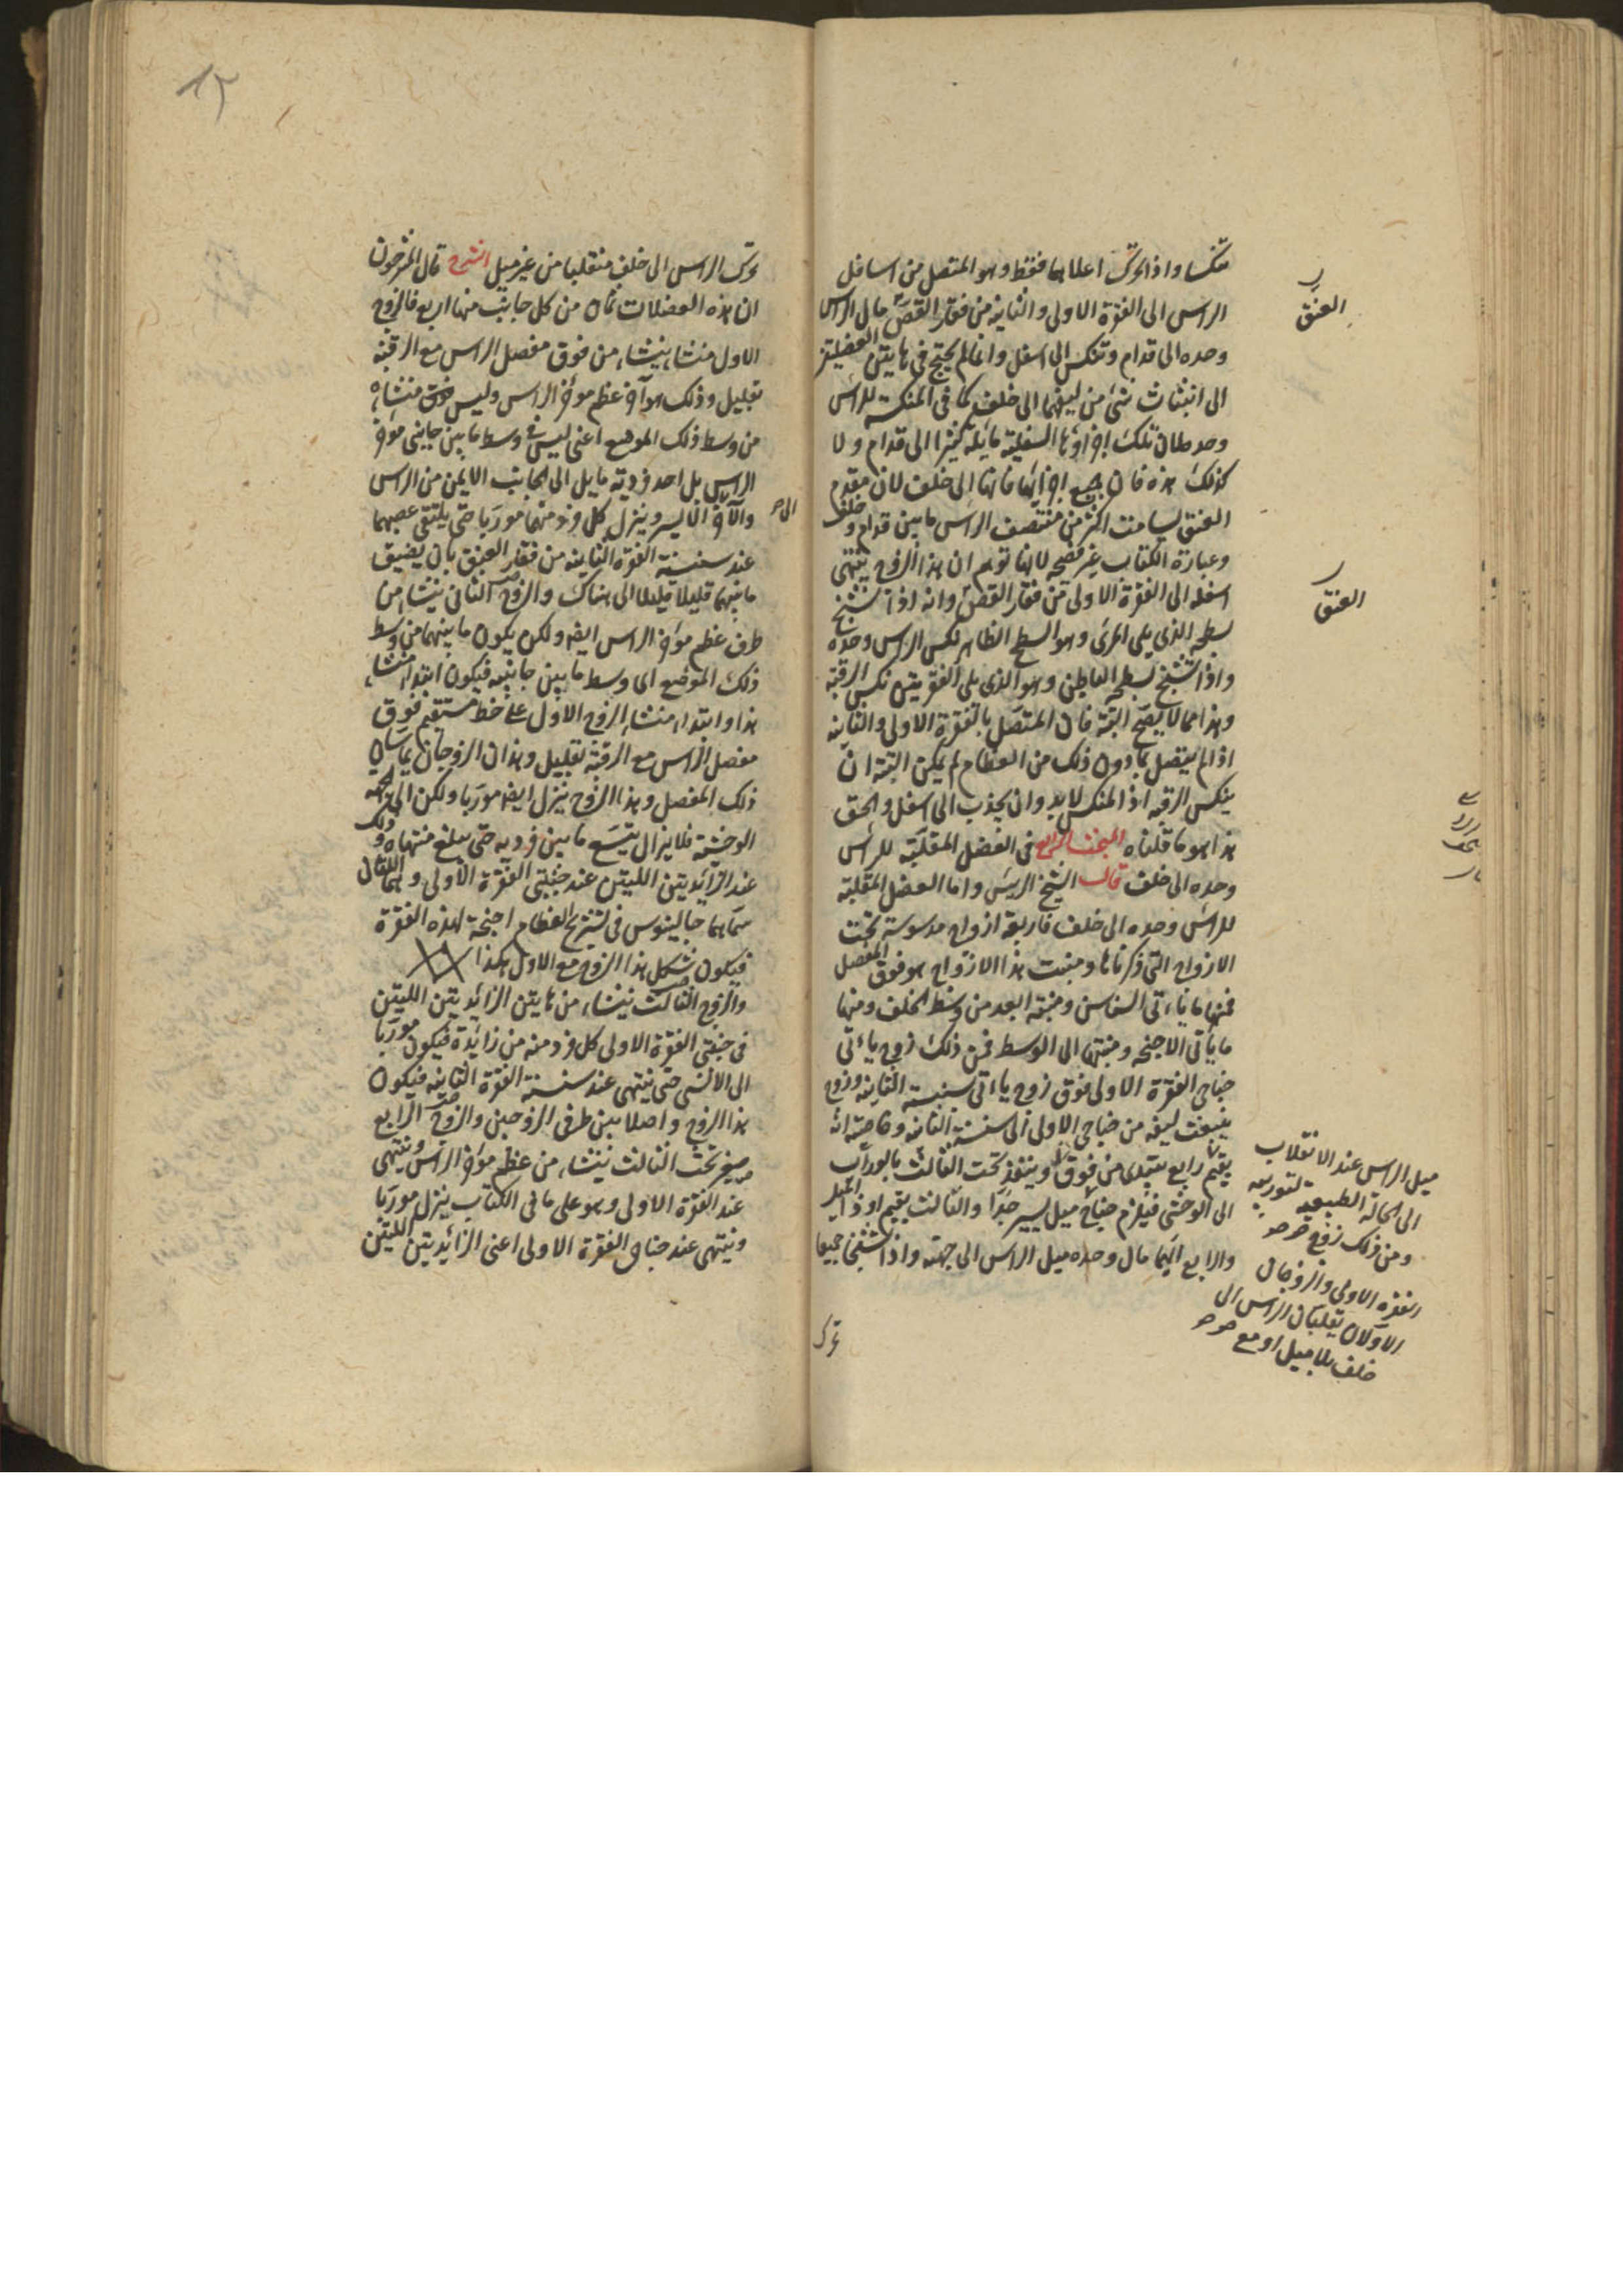 تنكسا واذا تحرك اعلاهما فقط وهو المتصل من اسافل
الراس الى الفقرة الاولى والثانية من فقار القص مال الراس
وحده الى قدام وتنكس الى اسفل وانما لم يحتج في هاتين العضلتين
الى انبثاث شئ من ليفهما الى خلف كما في المنكسة للراس
وحده فان تلك اجزاؤها السفلية مايلة كثيرا الى قدام ولا
كذلك هذه فان جميع اجزائها فانها الى خلف لان مقدم
العنق ليسامت اكثر من منتصف الراس ما بين قدام وخلف
وعبارة الكتاب غير فصحه لانها توهم ان هذا الزوج ينتهى
اسفله الى الفقرة الاولى من فقار القص وانه اذا تشنج
بسطحه الذى يلى المرى وهو السطح الظاهر نكس الراس وحده
واذا تشنج بسطحه الباطن وهو الذى يلى الفقرتين نكس الرقبة
وهذا مما لا يصح البتة فان المتصل بالفقرة الاولى والثانية
اذا لم يتصل بما دون ذلك من العظام لم يمكن البتة ان
ينكس الرقبة اذ المنكس لابد وان يجذب الى اسفل والحق
هذا هو ما قلناه المبحث الرابع في العضل المقلبة للراس
وحده الى خلف قال الشيخ الرييس واما العضل المقلبة
للراس وحده الى خلف فاربعة ازواج مدسوسة تحت
الازواج التى ذكرناها ومنبت هذا الازواج هو فوق المفصل
فمنها ما ياتى السناسن ومنبته ابعد من وسط الخلف ومنها
ما ياتى الاجنحة ومنبتها الى الوسط فمن ذلك زوج ياتى
جناحى الفقرة الاولى فوق زوج ياتى سنسنة الثانية وزوج
ينبعث ليفه من جناحى الاولى الى سنسنة الثانية وخاصته انه
يقيم
رابع يبتدى من فوق وينفذ تحت الثالث بالوراب
الى الوحشى فيلزم جناح ميل يسير جدا والثالث يقيم اود الميل
والرابع ايهما مال وحده ميل الراس الى جهته واذا تشنجا جميعا
تحرك
العنق
العنق
ميل الراس عند الانقلاب
الى الحالة الطبيعية لتوريبه
ومن ذلك زوج
الفقرة الاولى والزوجان
الاولان يقلبان الراس الى
خلف بلا ميل او مع
١٢
تحرك الراس الى خلف منقلبا من غير ميل الشرح قال المشرحون
ان هذه العضلات ثمان من كل جانب منها اربع فالزوج
الاول منشا ينشاء من فوق مفصل الراس مع الرقبة
بقليل وذلك هو آخر عظم مؤخر الراس وليس منشاه
من وسط ذلك الموضع اعنى ليس في وسط ما بين جانبى مؤخر
الراس بل احد فرديه مايل الى الجانب الايمن من الراس
والآخر الى الايسر وينزل كل فرد منهما موربا حتى يلتقى عصبهما
عند سنسنة الفقرة الثانية من فقار العنق بان يضيق
ما بينهما قليلا قليلا الى هناك والزوج الثانى ينشاء من
طرف عظم مؤخر الراس ايضا ولكن يكون ما بينهما من وسط
ذلك الموضع اى وسط ما بين جانبيه فيكون ابتداء منشاء
هذا وابتداء منشاء الزوج الاول على خط مستقيم فوق
مفصل الراس مع الرقبة بقليل وهذان الزوجان يماسان
ذلك المفصل وهذا الزوج ينزل ايضا موربا ولكن الى الجهة
الوحشية فلا يزال يتسع ما بين فرديه حتى يبلغ منتهاه وذلك
عند الزائدتين اللتين عند جنبتى الفقرة الاولى وهما اللتان
سماهما جالينوس في تشريح العظام اجنحة لهذه الفقرة
فيكون شكل هذا الزوج مع الاول هكذا
والزوج الثالث ينشاء من هاتين الزائدتين اللتين
في جنبتى الفقرة الاولى كل فرد منه من زائدة فيكون موربا
الى الانسى حتى ينتهى عند سنسنة الفقرة الثانية فيكون
هذا الزوج واصلا بين طرفى الزوجين والزوج الرابع
صغير تحت الثالث ينشاء من عظم مؤخر الراس وينتهى
عند الفقرة الاولى وهو على ما في الكتاب ينزل موربا
وينتهى عند جناح الفقرة الاولى اعنى الزائدتين اللتين